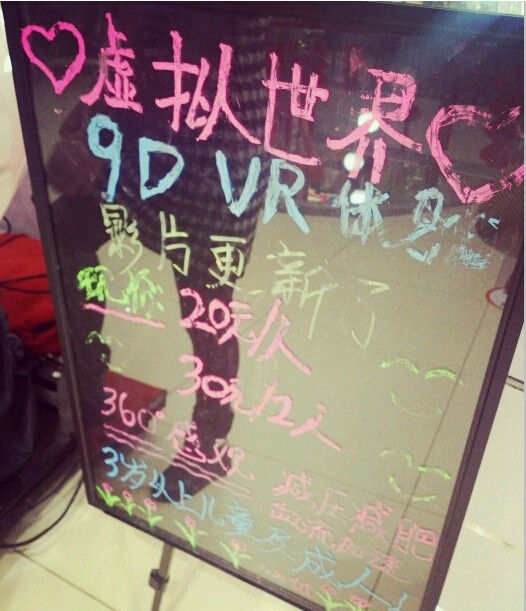 虚拟世界
9D VR 体身
影片更新了
玩依 20元/人
30元/2人
360°感观 减压减肥
血流加速
3岁以上儿童及成人!